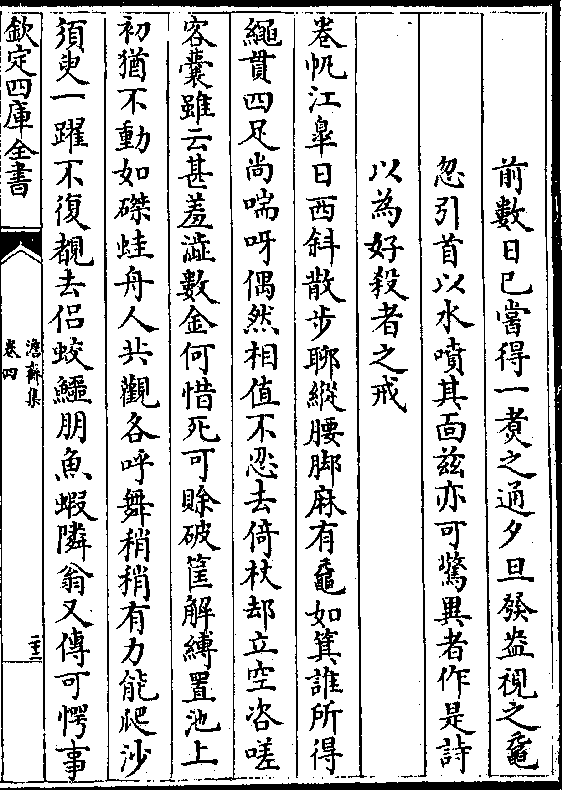 前數日已嘗得一煑之通夕旦發盎視之黿
忽引首以水噴其面兹亦可驚異者作是詩
以為好殺者之戒
卷帆江臯日西斜散步聊縱腰脚麻有黿如箕誰所得
繩貫四足尚喘呀偶然相值不忍去倚杖却立空咨嗟
容囊雖云甚羞澁數金何惜死可賖破筐解縛置池上
初猶不動如磔蛙舟人共觀各呼舞稍稍有力能爬沙
須臾一躍不復覩去侣蛟鱷朋魚蝦隣翁又傳可愕事
欽定四庫全書
澹齋集
卷四
二十二